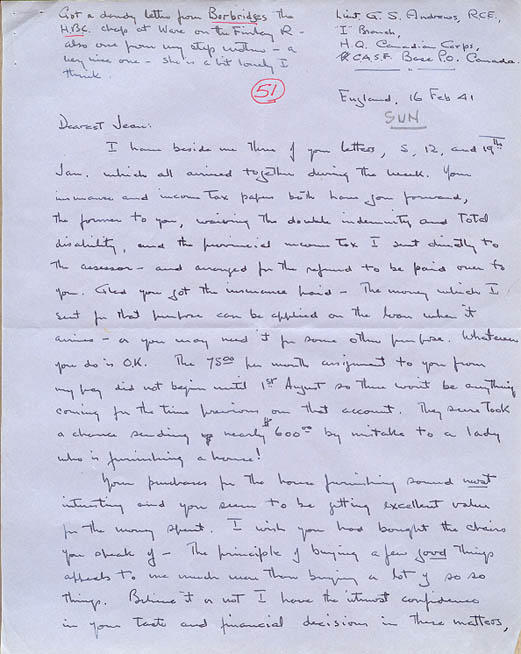 Got a dandy letter from Borbridges the
H.B.C. chap at Ware on the Finlay R -
also one from my step mother - a
very nice one - she is a bit lonely I
think.
51
Lieut. G. S. Andrews, RCE.,
I Branch,
H.Q. Canadian Corps,
CASF. Base P.O. Canada.
England, 16 Feb 41
SUN
Dearest Jean:
I have beside me three of your letters, 5, 12, and 19th
Jan. which all arrived together during the week. Your
insurance and income tax papers both have gone forward,
the former to you, waiving the double indemnity and total
disability, and the provincial income tax I sent directly to
the assessor - and arranged for the refund to be paid over to
you. Glad you got the insurance paid - The money which I
sent for that purpose can be applied on the loan when it
arrives - or you may need it for some other purpose. Whatever
you do is O.K. The 75.00 per month assignment to you from
my pay did not begin until 1st August so there won't be anything
coming for the time previous on that account. They sure took
a chance sending nearly $600.00 by mistake to a lady
who is furnishing a house!
Your purchases for the house furnishing sound most
interesting and you seem to be getting excellent value
for the money spent. I wish you had bought the chairs
you speak of - The principle of buying a few good things
appeals to me much more than buying a lot of so so
things. Believe it or not I have the utmost confidence
in your taste and financial decisions in these matters,